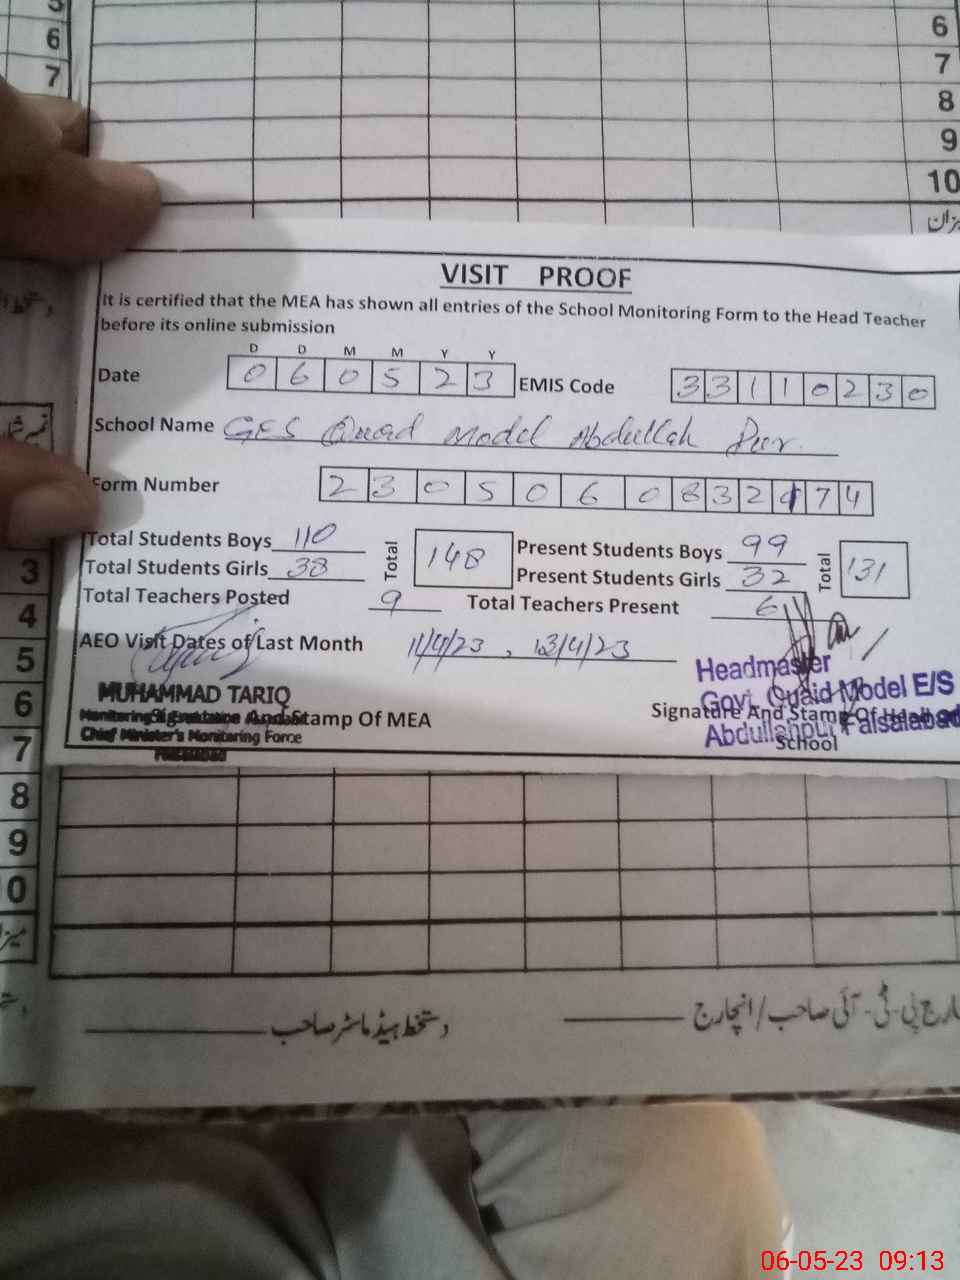 5
6
7
6
7
8
9
10
VISIT PROOF
It is certified that the MEA has shown all entries of the School Monitoring Form to the Head Teacher
before its online submission
D D M M Y Y
Date 0 6 0 5 2 3 EMIS Code 3 3 1 1 0 2 3 0
School Name GES Quad Model Abdullah Pur.
Form Number 2 3 0 5 0 6 0 8 3 2 4 7 4
Total Students Boys 110 Total 148 Present Students Boys 99 Total 131
Total Students Girls 38 Present Students Girls 32
Total Teachers Posted 9 Total Teachers Present 6
AEO Visit Dates of Last Month 11/4/23 , 13/4/23
Headmaster
MUHAMMAD TARIQ Govt. Quaid Model E/S
Signature And Stamp Of MEA Signature And Stamp Of
Chief Minister's Monitoring Force Abdullahpur Faisalabad
School
3
4
5
6
7
8
9
0
دستخط ہیڈ ماسٹر صاحب
انچارج پی-ٹی-آئی صاحب/انچارج
06-05-23 09:13